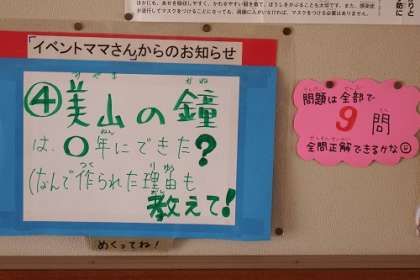 「イベントママさん」からのお知らせ
④美山の鐘
は、〇年にできた?
(なんで作られた理由も
教えて!
めくってね!
問題は全部で
9問
全問正解できるかな